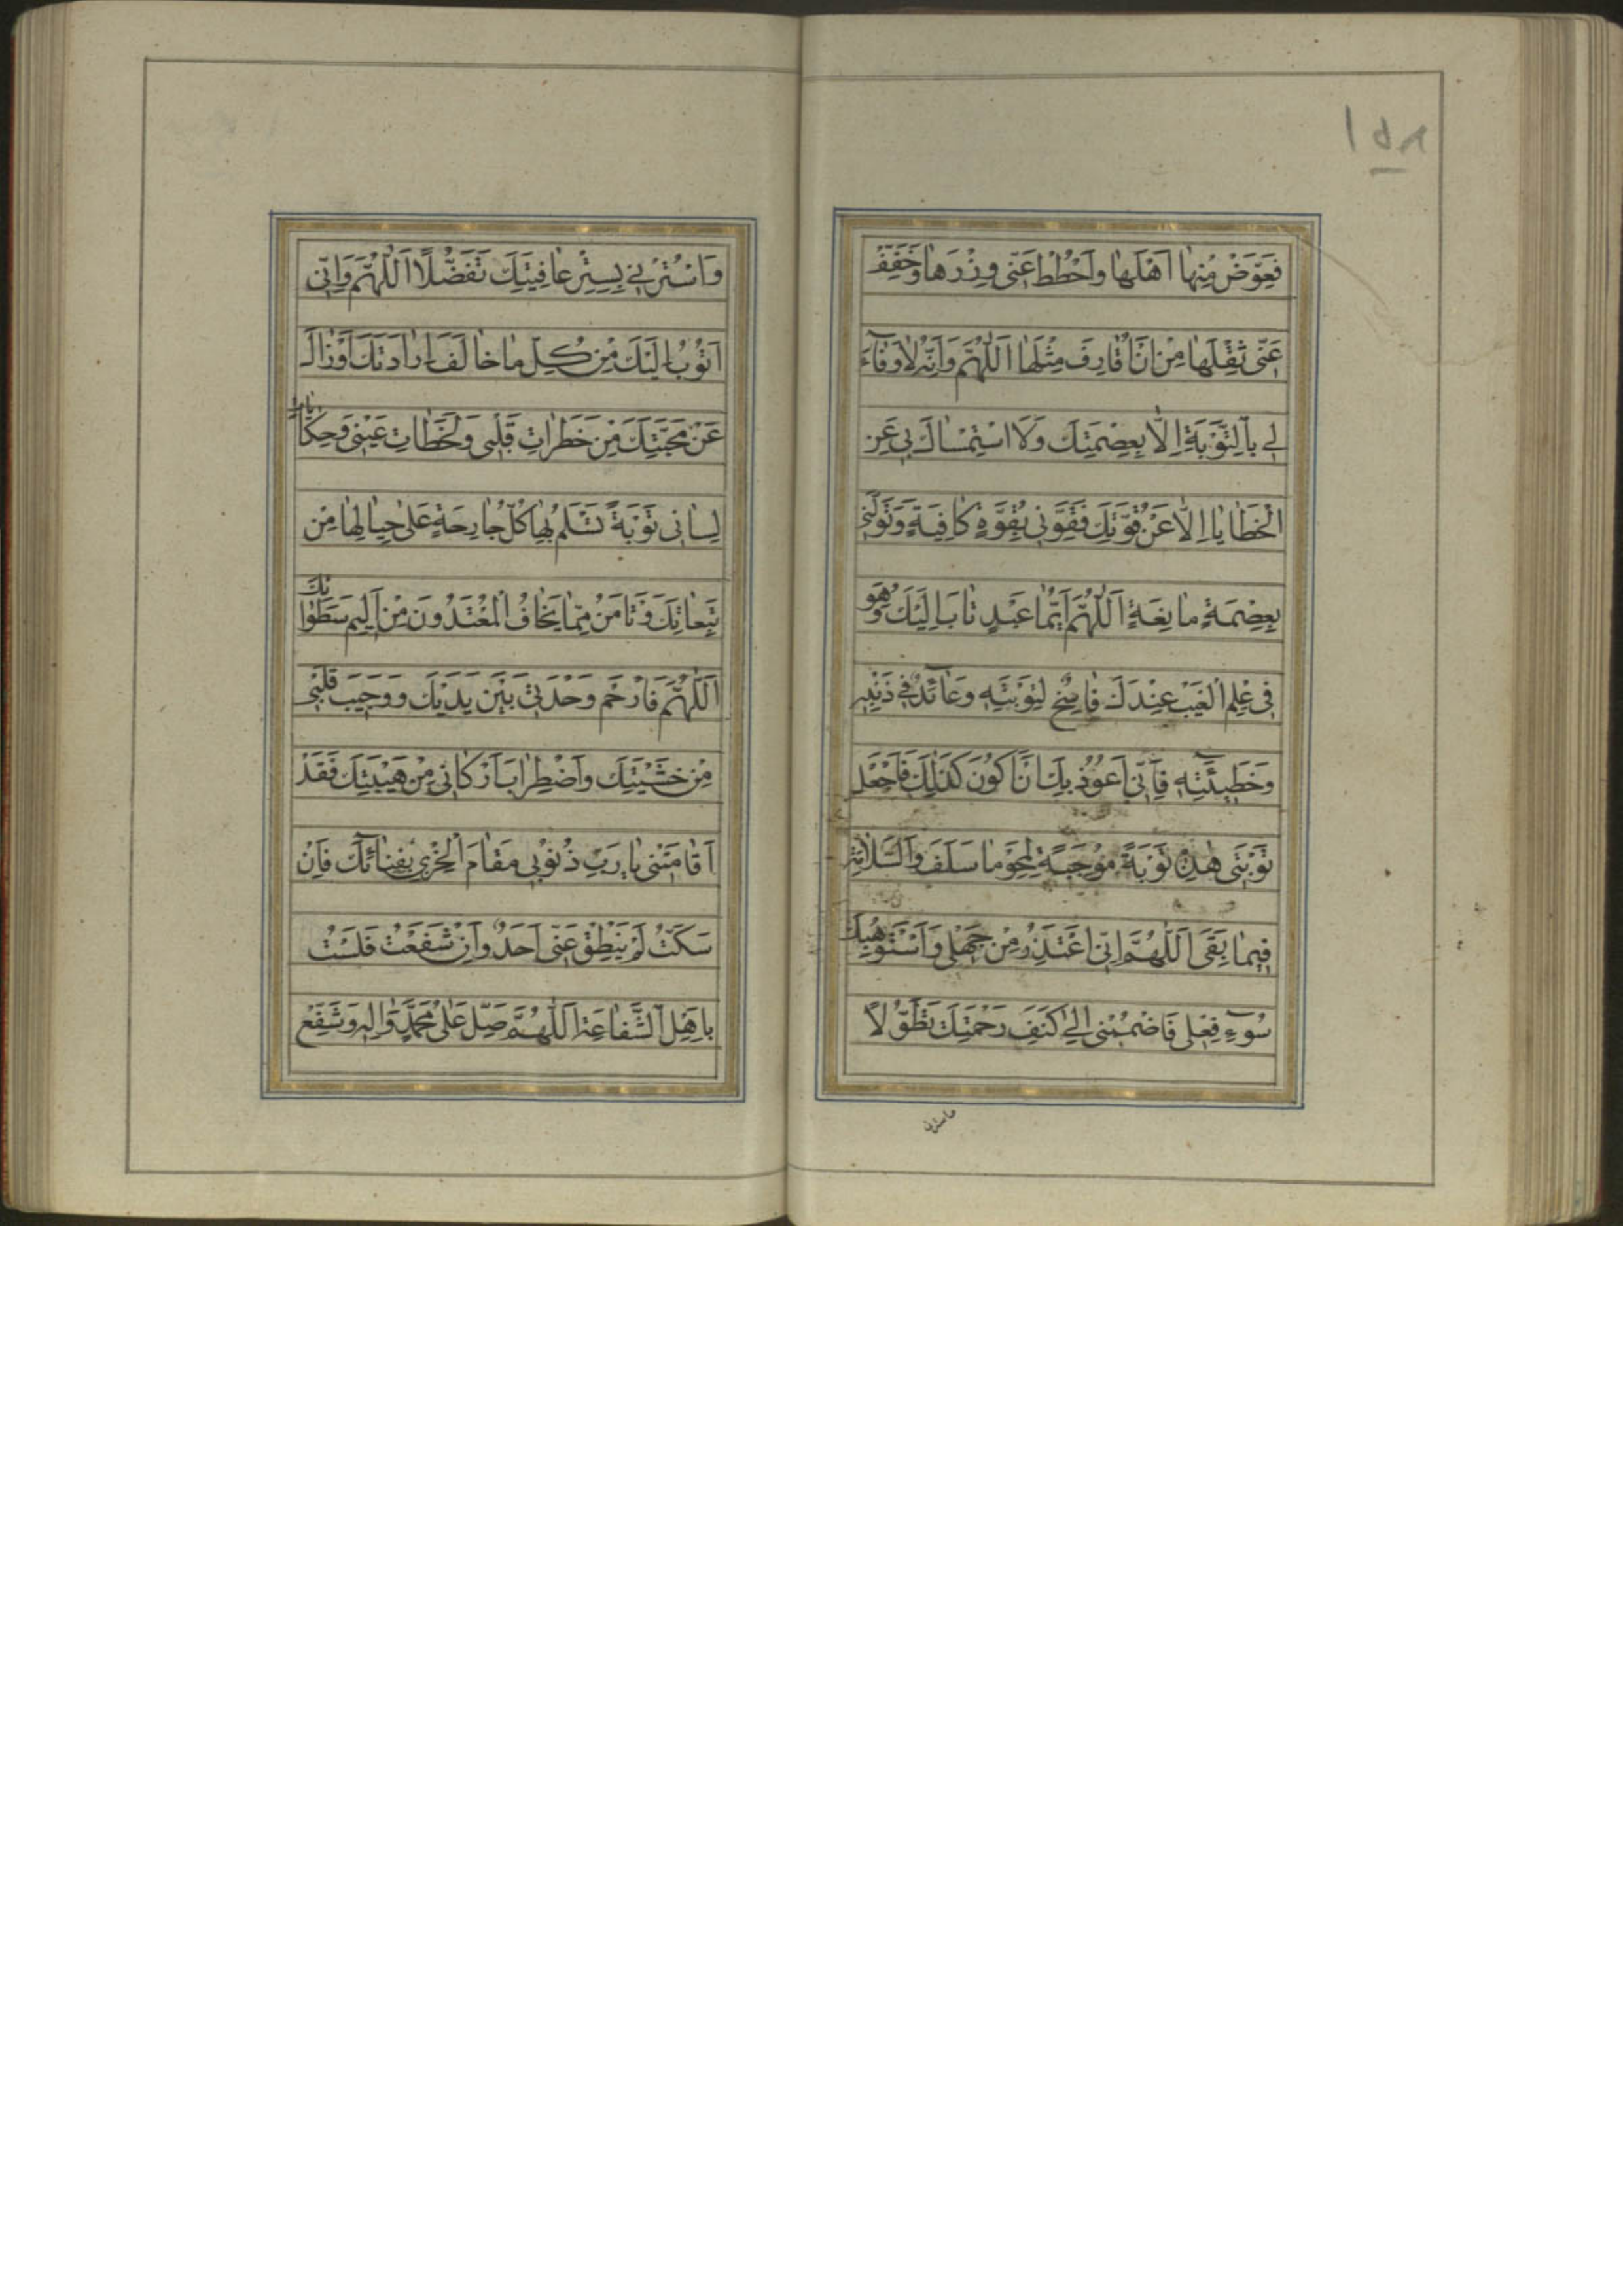 ١٥٨
فَعَوِّضْ مِنْها اَهْلَها وَاحْطُطْ عَنّى وِزْرَها وَخَفِّفْ
عَنّى ثِقْلَها مِنْ اَنْ اُقارِفَ مِثْلَها اَللّهُمَّ وَاِنَّهُ لا وَفآءَ
لى بِالتَّوْبَةِ اِلّا بِعِصْمَتِكَ وَلَا اسْتِمْساكَ بى عَنِ
الْخَطايا اِلّا عَنْ قُوَّتِكَ فَقَوِّنى بِقُوَّةٍ كافِيَةٍ وَتَوَلَّنى
بِعِصْمَةٍ مانِعَةٍ اَللّهُمَّ اَيُّما عَبْدٍ تابَ اِلَيْكَ وَهُوَ
فى عِلْمِ الْغَيْبِ عِنْدَكَ فاسِخٌ لِتَوْبَتِهِ وَعائِدٌ فى ذَنْبِهِ
وَخَطيئَتِهِ فَاِنّى اَعُوذُ بِكَ اَنْ اَكُونَ كَذلِكَ فَاجْعَلْ
تَوْبَتى هذِهِ تَوْبَةً مُوجِبَةً لِمَحْوِ ما سَلَفَ وَالسَّلامَةِ
فيما بَقِىَ اَللّهُمَّ اِنّى اَعْتَذِرُ مِنْ جَهْلى وَاَسْتَوْهِبُكَ
سُوءَ فِعْلى فَاضْمُمْنى اِلى كَنَفِ رَحْمَتِكَ تَطَوُّلًا
واسترنى
وَاسْتُرْنى بِسِتْرِ عافِيَتِكَ تَفَضُّلًا اَللّهُمَّ وَاِنّى
اَتُوبُ اِلَيْكَ مِنْ كُلِّ ما خالَفَ اِرادَتَكَ اَوْ زالَ
عَنْ مَحَبَّتِكَ مِنْ خَطَراتِ قَلْبى وَلَحَظاتِ عَيْنى وَحِكاياتِ
لِسانى تَوْبَةً تَسْلَمُ بِها كُلُّ جارِحَةٍ عَلى حِيالِها مِنْ
تَبِعاتِكَ وَتَأْمَنُ مِمّا يَخافُ الْمُعْتَدُونَ مِنْ اَليمِ سَطَواتِكَ
اَللّهُمَّ فَارْحَمْ وَحْدَتى بَيْنَ يَدَيْكَ وَوَجيبَ قَلْبى
مِنْ خَشْيَتِكَ وَاضْطِرابَ اَرْكانى مِنْ هَيْبَتِكَ فَقَدْ
اَقامَتْنى يا رَبِّ ذُنُوبى مَقامَ الْخِزْىِ بِفِنائِكَ فَاِنْ
سَكَتُّ لَمْ يَنْطِقْ عَنّى اَحَدٌ وَاِنْ شَفَعْتُ فَلَسْتُ
بِاَهْلِ الشَّفاعَةِ اَللّهُمَّ صَلِّ عَلى مُحَمَّدٍ وَالِهِ وَشَفِّعْ